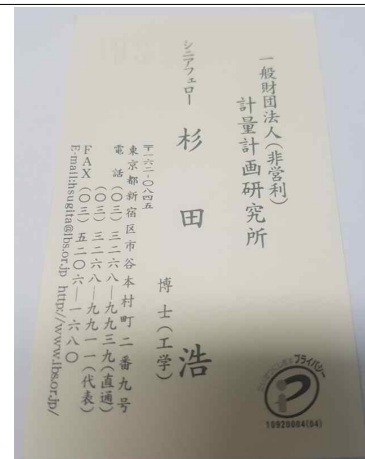 一般財団法人(非営利)
計量計画研究所
シニアフェロー 杉田 浩
博士(工学)
〒一六二-〇八四五
東京都新宿区市谷本村町二番九号
電話(〇三)三二六八―九九三九(直通)
(〇三)三二六八―九九一一(代表)
FAX(〇三)五二〇六―一六八〇
E-mail:hsugita@ibs.or.jp http://www.ibs.or.jp/
プライバシー
10920004(04)